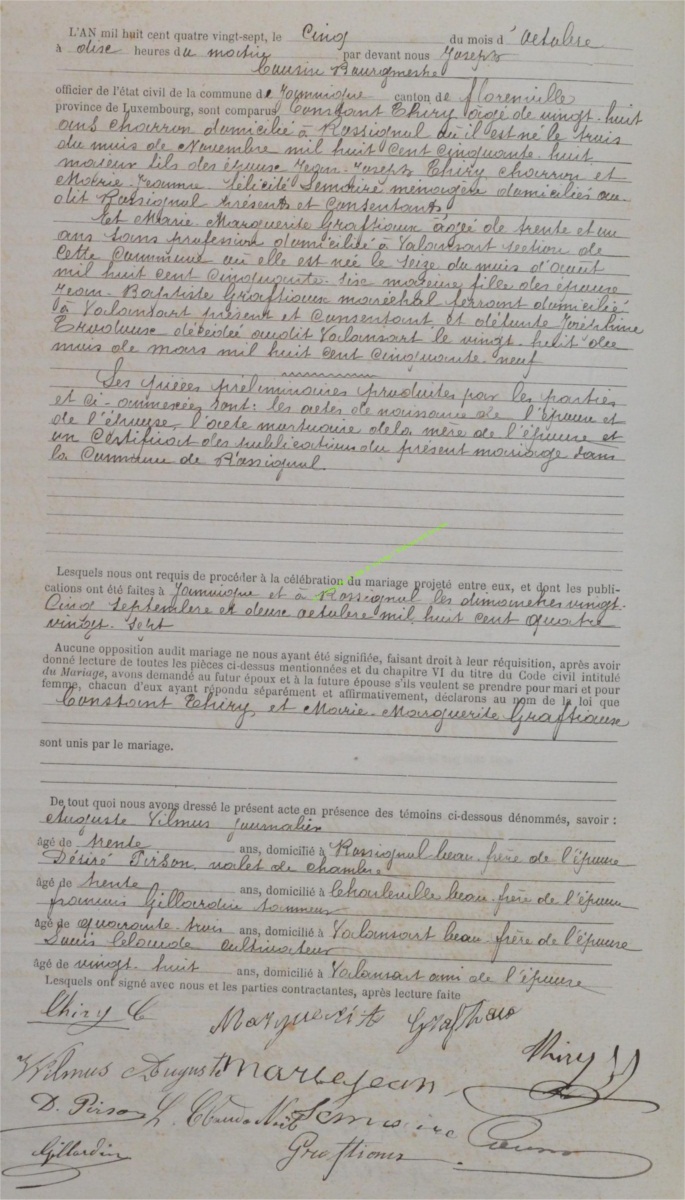 L'AN mil huit cent quatre vingt-sept, le Cinq du mois d'Octobre
à dix heures du matin par devant nous Joseph
Cousin Bourgmestre
officier de l'état civil de la commune de Jamoigne canton de florenville
province de Luxembourg, sont comparus Constant Thiry âgé de vingt-huit
ans charron domicilié à Rossignol où il est né le trois
du mois de Novembre mil huit cent cinquante-huit
majeur fils des époux Jean-Joseph Thiry charron et
Marie-Jeanne-félicité Semoire ménagère domiciliés au
dit Rossignol présents et consentants
Et Marie-Marguerite Graftiaux âgée de trente et un
ans sans profession domiciliée à Valansart section de
cette Commune où elle est née le seize du mois d'août
mil huit cent cinquante-six majeure fille des époux
Jean-Baptiste Graftiaux maréchal ferrant domicilié
à Valansart présent et consentant et défunte Joséphine
décédée audit Valansart le vingt-huit du
mois de mars mil huit cent cinquante-neuf
Les pièces préliminaires produites par les parties
et ci-annexées sont: les actes de naissance de l'époux et
de l'épouse, l'acte mortuaire de la mère de l'épouse et
un certificat des publications du présent mariage dans
la Commune de Rossignol.
Lesquels nous ont requis de procéder à la célébration du mariage projeté entre eux, et dont les publi-
cations ont été faites à Jamoigne et à Rossignol les dimanches vingt-
Cinq Septembre et deux octobre mil huit cent quatre
vingt-sept
Aucune opposition audit mariage ne nous ayant été signifiée, faisant droit à leur réquisition, après avoir
donné lecture de toutes les pièces ci-dessus mentionnées et du chapitre VI du titre du Code civil intitulé
du Mariage, avons demandé au futur époux et à la future épouse s'ils veulent se prendre pour mari et pour
femme, chacun d'eux ayant répondu séparément et affirmativement, déclarons au nom de la loi que
Constant Thiry et Marie-Marguerite Graftiaux
sont unis par le mariage.
De tout quoi nous avons dressé le présent acte en présence des témoins ci-dessous dénommés, savoir :
Auguste Vilmus journalier
âgé de trente ans, domicilié à Rossignol beau-frère de l'épouse
Désiré Pirson valet de chambre
âgé de trente ans, domicilié à Charleville beau-frère de l'épouse
françois Gillardin tanneur
âgé de quarante-trois ans, domicilié à Valansart beau-frère de l'épouse
Louis cultivateur
âgé de vingt-huit ans, domicilié à Valansart ami de l'épouse
Lesquels ont signé avec nous et les parties contractantes, après lecture faite
Thiry C Marguerite Graftiaux
Thiry JJ
Vilmus Auguste Marie jean
D. Pirson
Gillardin Graftiaux